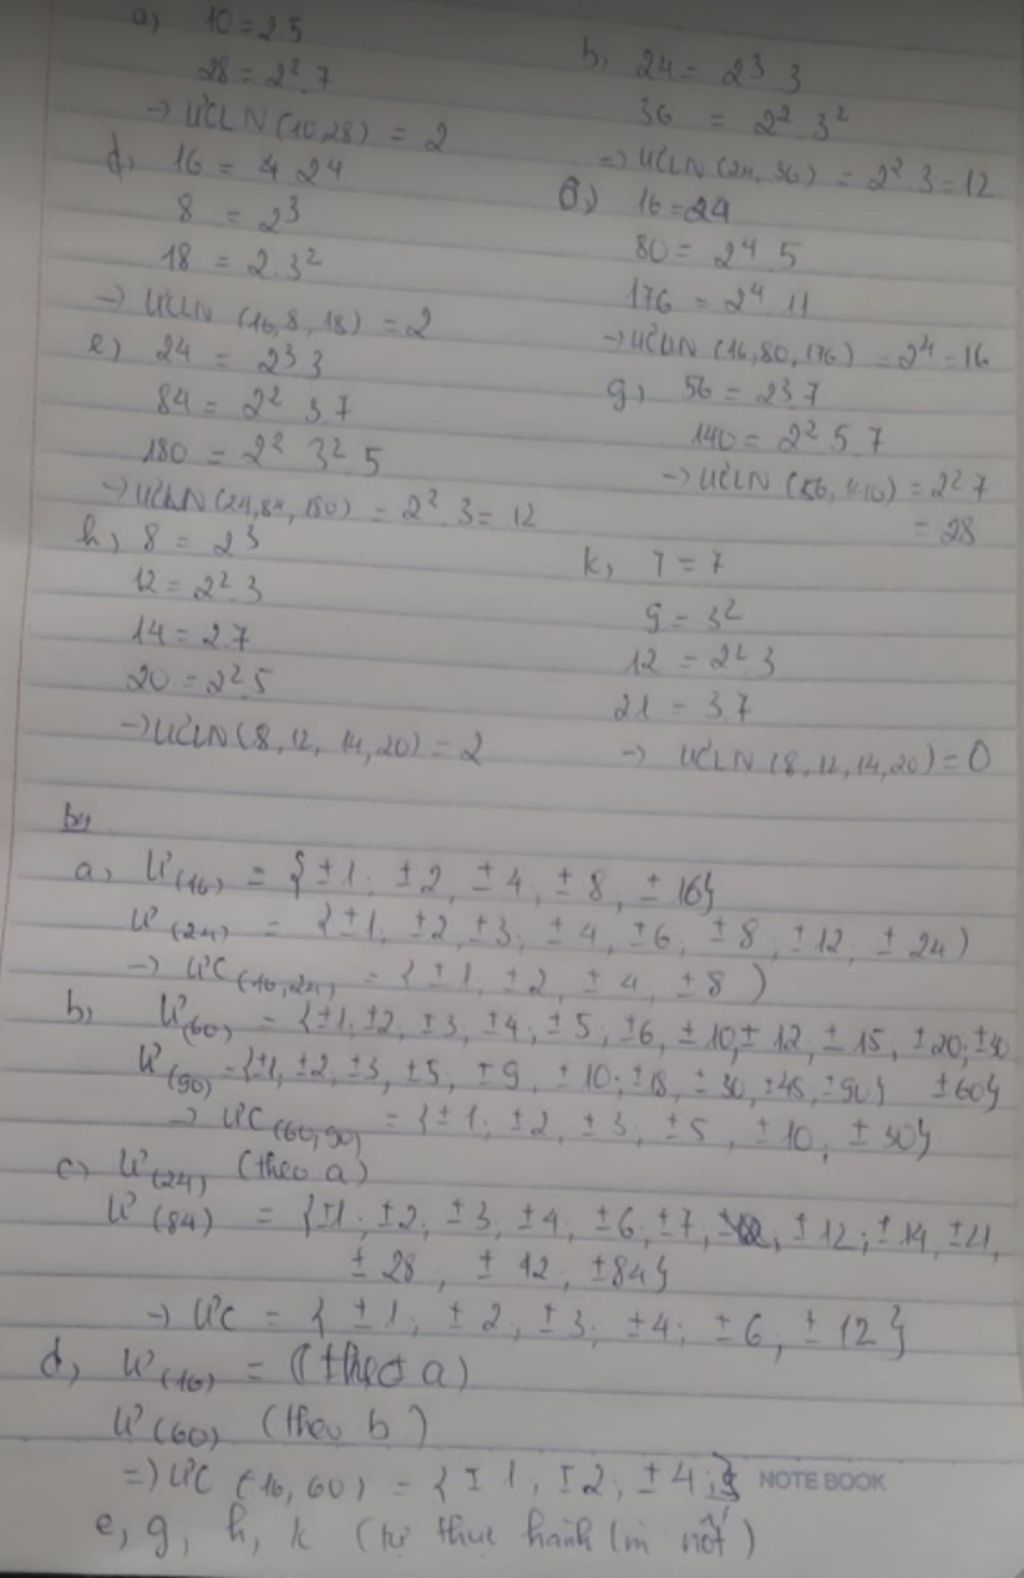 a) 10 = 2.5
28 = 2². 7
→ ƯCLN (10,28) = 2
b, 24 = 2³ 3
36 = 2² 3²
=> ƯCLN (24, 36) = 2² 3 = 12
d, 16 = 2⁴
8 = 2³
18 = 2.3²
→ ƯCLN (16,8,18) = 2
16 = 2⁴
80 = 2⁴ 5
176 = 2⁴ 11
→ ƯCLN (16,80,176) = 2⁴ = 16
e) 24 = 2³ 3
84 = 2² 3.7
180 = 2² 3² 5
→ ƯCLN (24,84,180) = 2². 3 = 12
g, 56 = 2³.7
140 = 2² 5.7
→ ƯCLN (56, 140) = 2² 7
= 28
h, 8 = 2³
12 = 2².3
14 = 2.7
20 = 2².5
→ ƯCLN (8, 12, 14,20) = 2
k, 7 = 7
9 = 3²
12 = 2² 3
21 = 3.7
→ ƯCLN (8,12,14,20) = 0
a, Ư(16) = {±1; ±2, ±4; ±8, ±16}
Ư(24) = {±1, ±2, ±3; ±4, ±6; ±8; ±12; ±24)
→ ƯC(16,24) = {±1, ±2, ±4, ±8)
b, Ư(60) = {±1; ±2, ±3, ±4; ±5, ±6, ±10, ±12; ±15, ±20; ±30
±60}
Ư(90) = {±1, ±2, ±3, ±5, ±9, ±10; ±18, ±30, ±45, ±90}
→ ƯC(60,90) = {±1; ±2, ±3; ±5, ±10, ±30}
c) Ư(24) (theo a)
Ư(84) = {±1; ±2, ±3, ±4, ±6, ±7, ±12; ±14, ±21,
±28, ±12, ±84}
→ ƯC = {±1; ±2, ±3; ±4; ±6; ±12}
d, Ư(16) = (theo a)
Ư(60) (theo b)
=> ƯC (16, 60) = {±1; ±2; ±4}
NOTE BOOK
e, g, h, k (tự thực hành lm nốt)